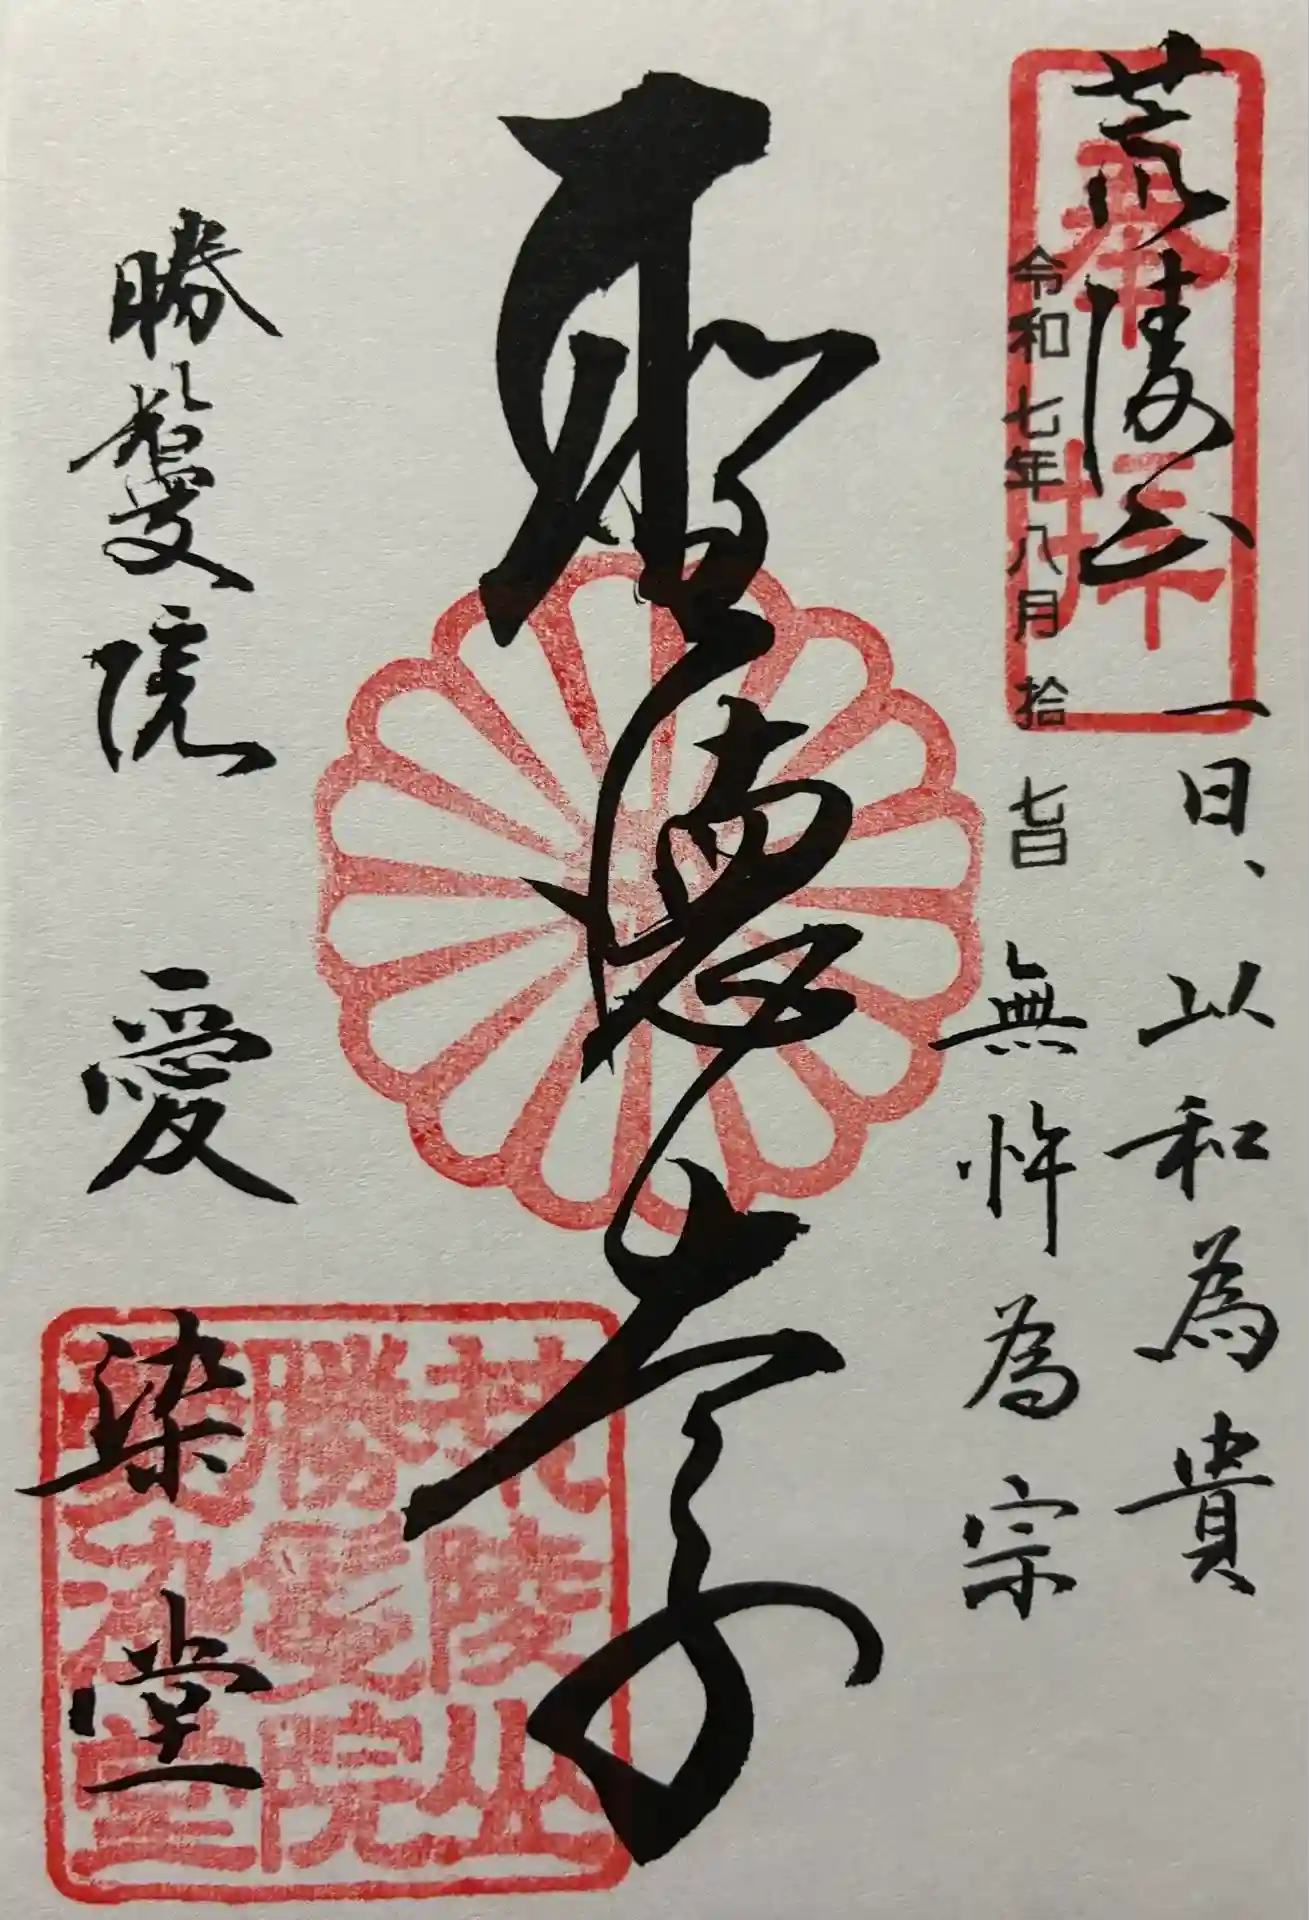 奉拝
荒陵山
一日、以和為貴
令和七年八月拾七日
無忤為宗
聖徳太子
勝鬘院
愛染堂
荒陵山
勝鬘院
愛染堂